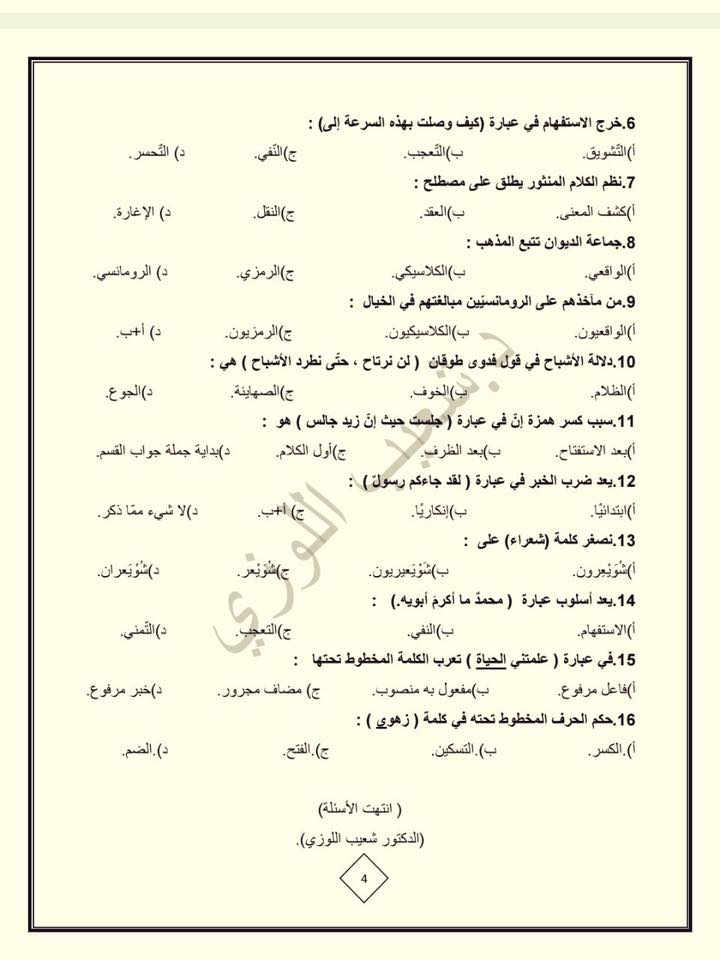 6.خرج الاستفهام في عبارة (كيف وصلت بهذه السرعة إلى) :
أ)التّشويق. ب)التّعجب. ج)النّفي. د) التّحسر.
7.نظم الكلام المنثور يطلق على مصطلح :
أ)كشف المعنى. ب)العقد. ج)النقل. د) الإغارة.
8.جماعة الديوان تتبع المذهب :
أ)الواقعي. ب)الكلاسيكي. ج)الرمزي. د) الرومانسي.
9.من مآخذهم على الرومانسيّين مبالغتهم في الخيال :
أ)الواقعيون. ب)الكلاسيكيون. ج)الرمزيون. د) أ+ب.
10.دلالة الأشباح في قول فدوى طوقان ( لن نرتاح ، حتّى نطرد الأشباح ) هي :
أ)الظلام. ب)الخوف. ج)الصهاينة. د)الجوع.
11.سبب كسر همزة إنّ في عبارة ( جلست حيث إنّ زيد جالس ) هو :
أ)بعد الاستفتاح. ب)بعد الظرف. ج)أول الكلام. د)بداية جملة جواب القسم.
12.يعد ضرب الخبر في عبارة ( لقد جاءكم رسولٌ ) :
أ)ابتدائيًا. ب)إنكاريًا. ج) أ+ب. د)لا شيء ممّا ذكر.
13.نصغر كلمة (شعراء) على :
أ)شُوَيْعِرون. ب)شُوَيَعيريون. ج)شُوَيْعر. د)شُوَيْعران.
14.يعد أسلوب عبارة ( محمدٌ ما أكرمَ أبويه.) :
أ)الاستفهام. ب)النفي. ج)التعجب. د)التّمني.
15.في عبارة ( علمتني الحياة ) تعرب الكلمة المخطوط تحتها :
أ)فاعل مرفوع. ب)مفعول به منصوب. ج) مضاف مجرور. د)خبر مرفوع.
16.حكم الحرف المخطوط تحته في كلمة ( زهوي ) :
أ).الكسر. ب).التسكين. ج).الفتح. د).الضم.
( انتهت الأسئلة)
(الدكتور شعيب اللوزي).
4
د.شعيب اللوزي